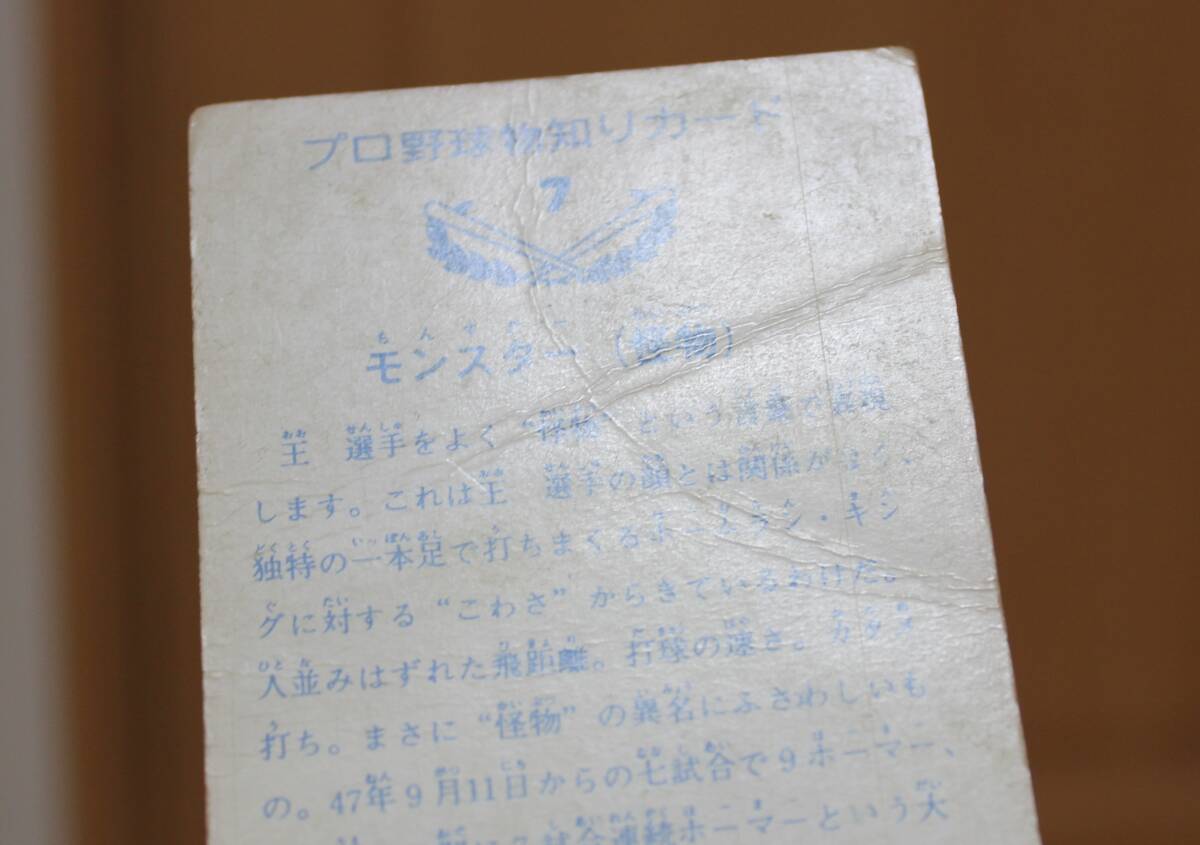 プロ野球物知りカード
7
モンスター（怪物）
王　選手をよく“怪物”という言葉で表現
します。これは王　選手の顔とは関係がなく、
独特の一本足で打ちまくるホームラン・キン
グに対する“こわさ”からきているわけだ。
人並みはずれた飛距離。打球の速さ。カタメ
打ち。まさに“怪物”の異名にふさわしいも
の。47年9月11日からの七試合で9ホーマー、
に7試合連続ホーマーという大